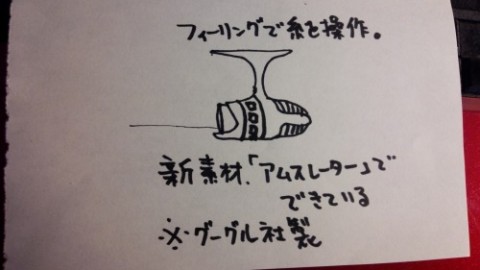 フィーリングで糸を操作。
新素材、「アムスレーター」で
できている
※グーグル社製